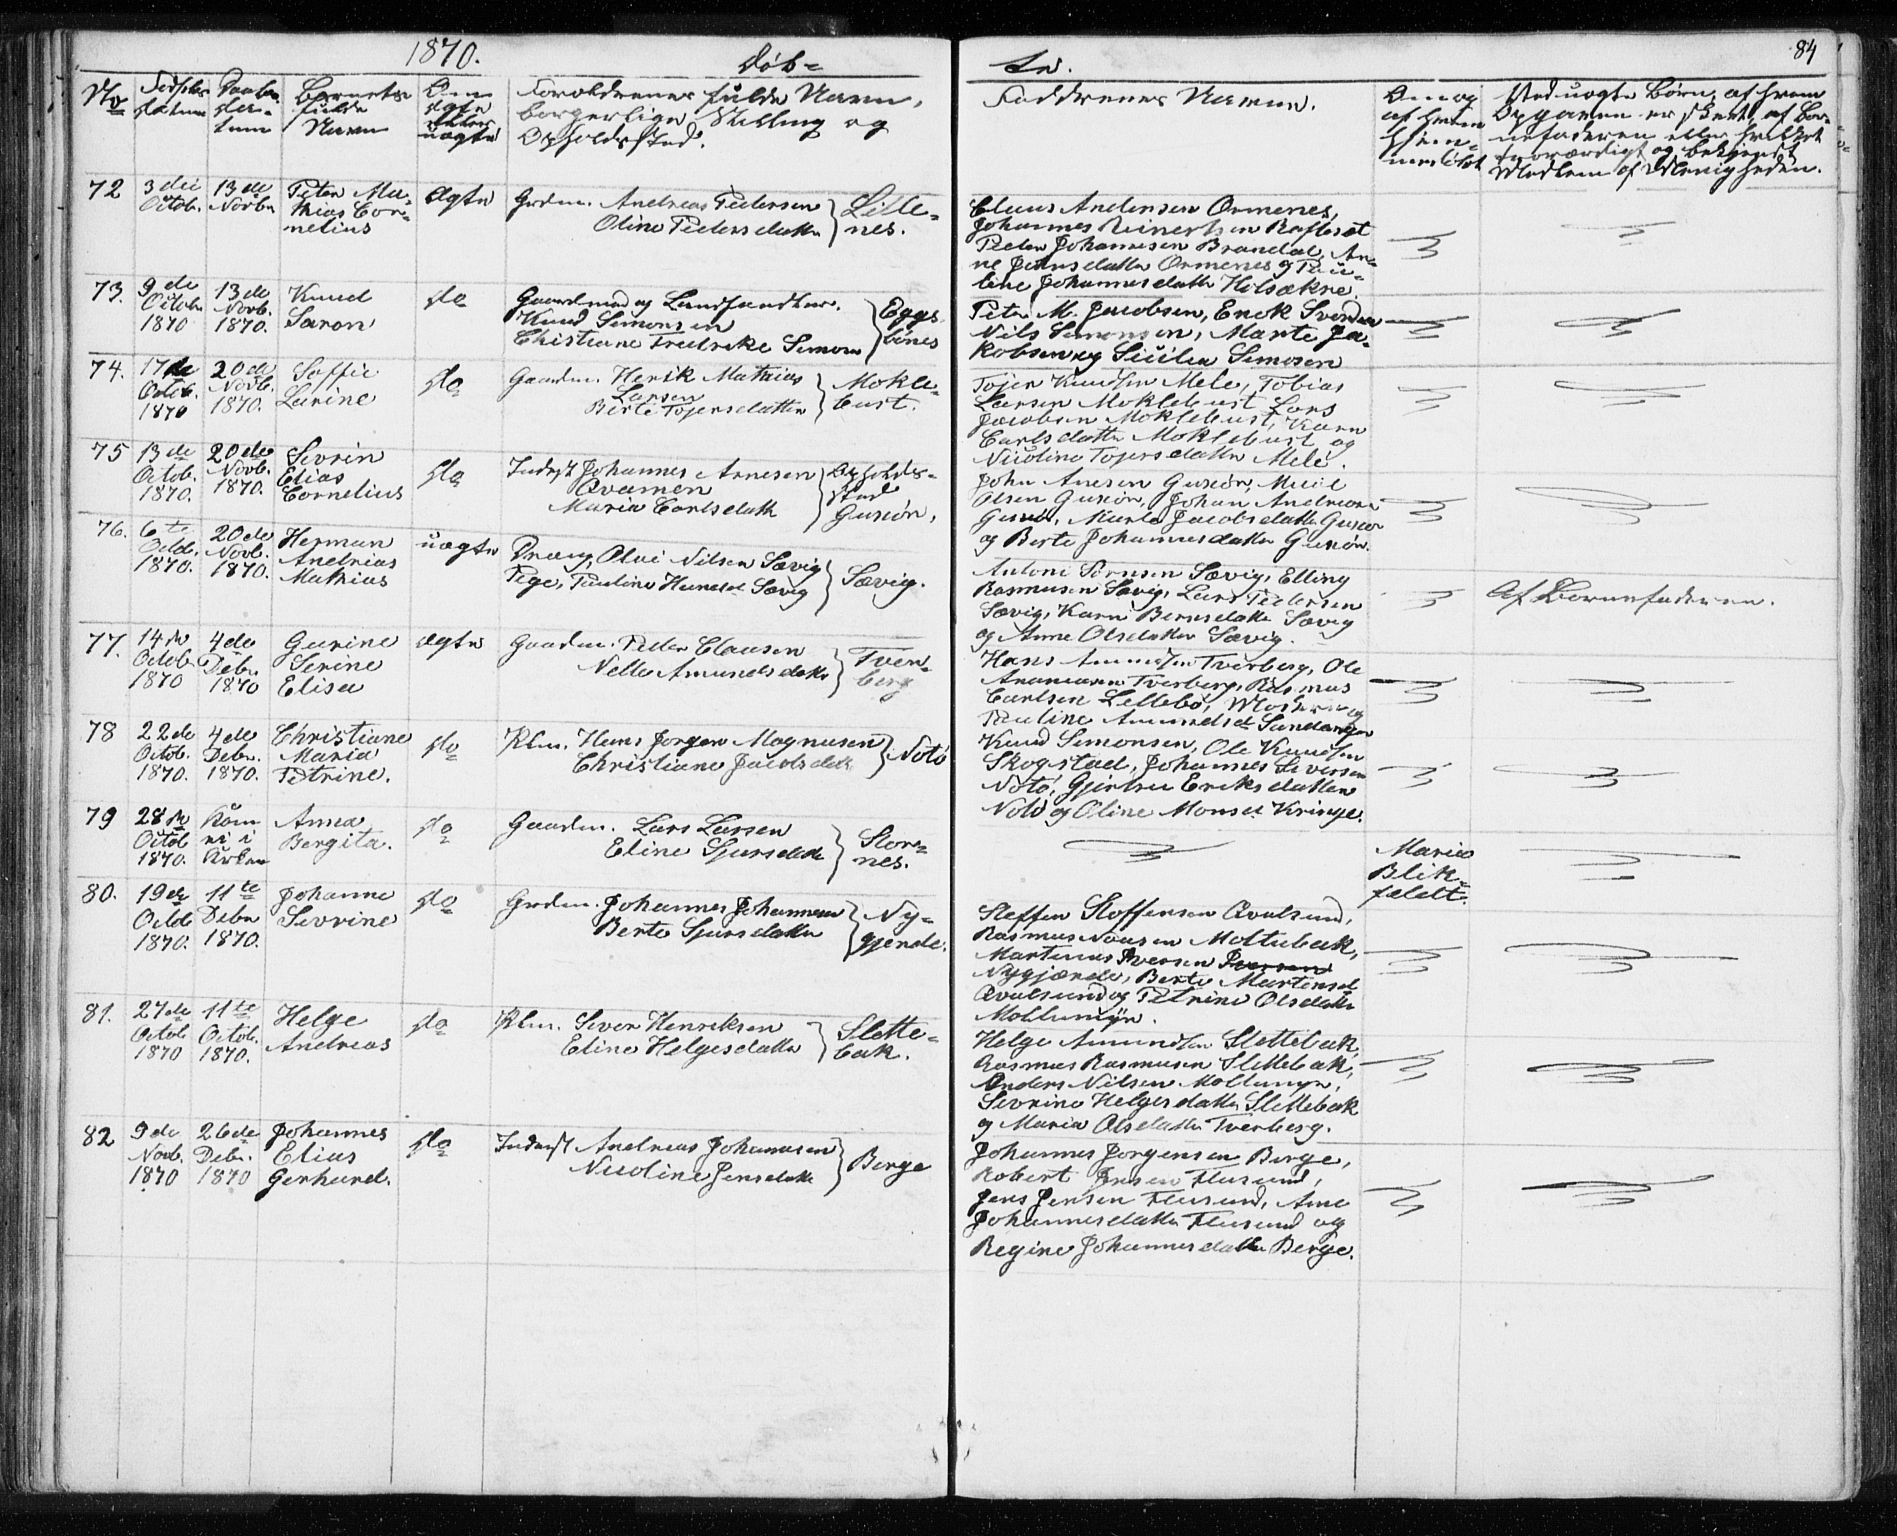 1870.
Døb-
te.
84
No
Fødsels
datum
Daabs
da-
tum
Barnets
fulde
Navn
Om
ægte
eller
uægte
Forældrenes fulde Navn,
borgerlige Stilling og
Opholdssted.
Faddernes Navne.
Om og
af hvem
hjem-
medøbt
Ved uægte Børn, af hvem
Opgaven er skeet, af Bar-
nefaderen eller hvilket
troværdigt og bekjendt
Medlem af Menigheden.
72
3die
Octob.
13de
Novbr
Peter Ma-
thias Cor-
nelius
ægte
Grdm. Andreas Pedersen
Oline Pedersdatter
Lille-
nes.
Claus Andersen Ormenes,
Johannes Reinertsen Rafteset
Peder Johannesen Brandal, An-
ne Jensdatter Ormenes og Pau-
line Johannesdatter Holsækre
73.
9de
Octobr
1870
13de
Novb.
1870.
Knud
Saron
do
Gaardmand og Landhandler.
Knud Simonsen
Christiane Fredrike Simons
Eggs
bønes
Peter M. Jacobsen, Erick Svendsen
Nils Simonsen, Marte Ja-
kobsen og Sicilia Simosen
74.
17de
Octob.
1870
20de
Novb.
1870.
Soffie
Larine
do
Gaardm. Henrik Mathias
Larsen
Berte Tojersdatter
Mokle-
bust.
Tojer Knudsen Mele, Tobias
Larsen Moklebust Lars
Jacobsen Moklebust, Karn
Carlsdatter Moklebust og
Nicoline Tojersdatter Mele.
75
13de
Octob.
1870.
20de
Novb.
1870.
Sivrin
Elias
Cornelius
do
Inderst Johannes Arnesen
Qvamen
Maria Carlsdatter
Opholds-
sted
Guriør,
John Anesen Guriør,
Olsen Guriør, Johan Andreas
Guriør, Marta Jacobsdatter Guriør
og Berte Johannesdatter Guriør.
76.
6te
Octb.
1870.
20de
Novb.
1870.
Herman
Andreas
Mathias
uægte
Dreng, Olai Nilsen Sævig
Pige, Pauline Hansd. Sævig
Sævig.
Antoni Sørnsen Sævig, Elling
Rasmusen Sævig, Lars Pedersen
Sævig, Karn Berns datter Sævig
og Anne Olsdatter Sævig.
Af Barnefaderen.
77.
14de
Octob.
1870
4de
Debr.
1870
Gurine
Serine
Elisa
ægte
Gaardm. Peder Clausen
Nelle Amundsdatter
Tver-
berg
Hans Amundsen Tverberg, Ole
Tverberg, Rasmus
Carlsen Lillebø,
Pauline Amundsd.
78
22de
Octob.
1870.
4de
Debr.
1870.
Christiane
Maria
Petrine.
do
Rbm. Hans Jørgen Magnusen
Christiane Jacobsdatter
Notø
Knud Simonsen, Ole Knudsen
Skogstad, Johannes Siversen
Notø, Gjertru Eriksdatter
Notø og Oline Monsd. Kringe.
79
28de
Octob
1870.
Kom
ei i
Kirken
Anna
Bergita.
do
Gaardm. Lars Larsen
Eline Sjursdatter
Store-
nes.
Maria
Blik-
feldt.
80.
19de
Octb
1870.
11te
Debr
1870.
Johanne
Sevrine
do
Grdm. Johannes Johannesen
Berte Sjursdatter
Ny-
gjerde.
Steffen Stoffensen Qvalsund,
Rasmus Moltubak,
Martinus Iversen Iversen
Nygjærde, Berte Martinsd.
Qvalsund og Petrine Olsdatter
Moltumyr.
81.
27de
Octob
1870
11te
Octob.
1870.
Helge
Andreas
do
Rbm. Siver Henriksen
Eline Helgesdatter
Slette-
bak.
Helge Amundsen Slettebak
Rasmus Rasmusen Slettebak,
Anders Nilsen Moltumyr,
Sevrine Helgesdatter Slettebak
og Maria Olsdatter Tverberg.
82
9de
Novb.
1870
26de
Debr.
1870
Johannes
Elias
Gerhard.
do
Inderst Andreas Johannesen
Nicoline Jensdatter
Berge
Johannes Jørgensen Berge,
Robert Jensen Flusund,
Jens Jensen Flusund, Ane
Johannesdatter Flusund og
Regine Johannesdatter Berge.